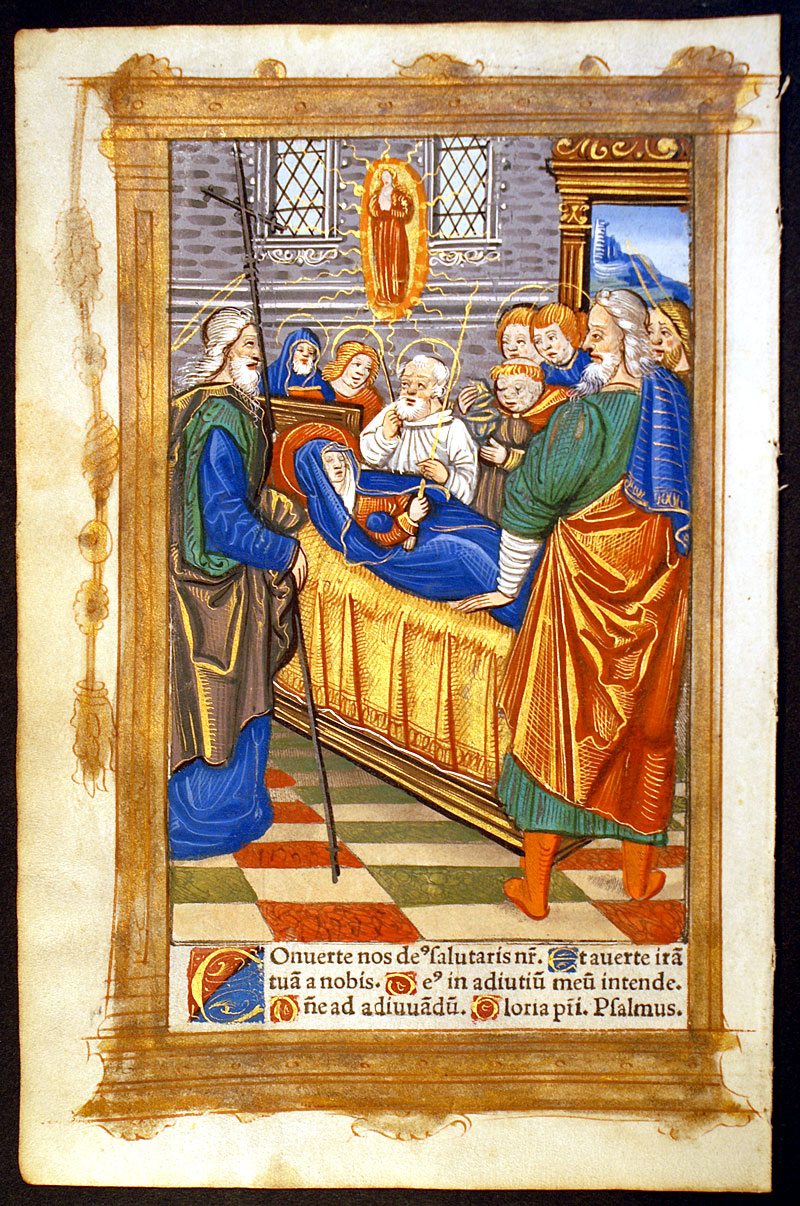 Conuerte nos de⁹ salutaris nr̃. Et auerte irã
tuã a nobis. De⁹ in adiutiũ meũ intende.
Dñe ad adiuuãdũ. Gloria pr̃i. Psalmus.